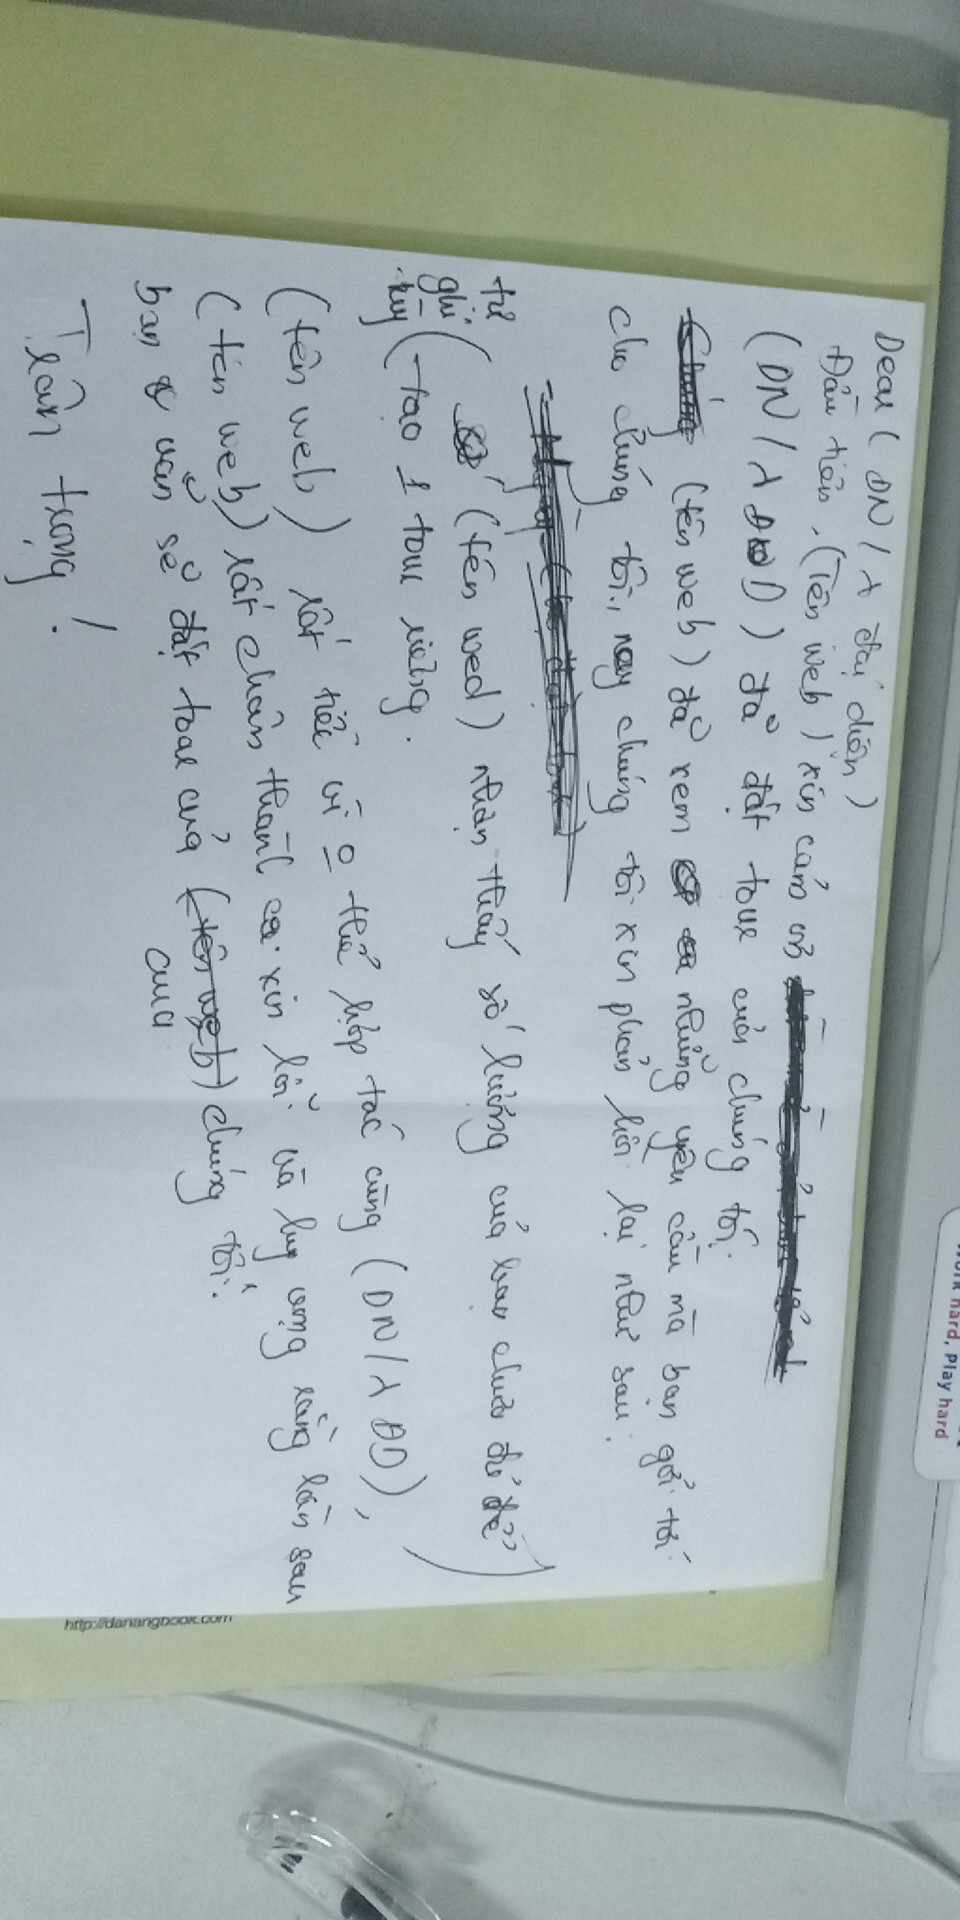 hard, Play hard
Dear ( DN / λ đại diện )
Đầu tiên, (Tên web) xin cảm ơn
(DN / λ ĐD) đã đặt tour của chúng tôi.
(tên web) đã xem những yêu cầu mà bạn gởi tới
cho chúng tôi, nay chúng tôi xin phản hồi lại như sau:
(tên wed) nhận thấy số lượng của bạn chưa đủ để
tự ghi tùy
tạo 1 tour riêng.
(tên web) rất tiếc vì o thể hợp tác cùng (DN / λ ĐD),
(tên web) rất chân thành xin lỗi và hy vọng rằng lần sau
bạn vẫn sẽ đặt tour của (tên web) chúng tôi.
của
Trân trọng !
http://danangbook.com